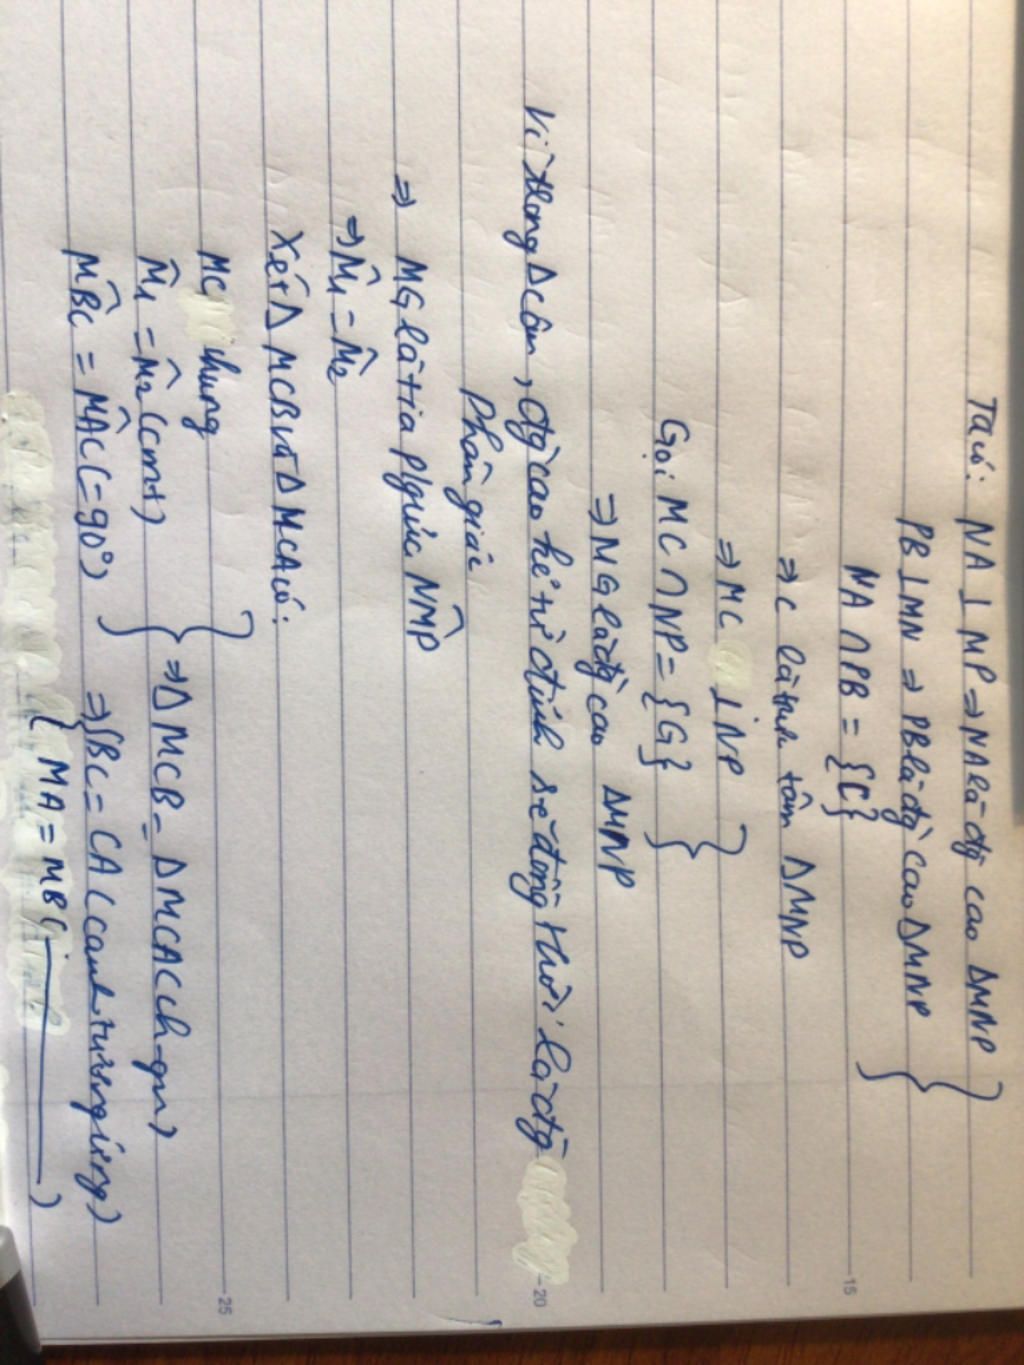 Ta có: NA ⊥ MP ⇒ NA là đg cao ΔMNP
PB ⊥ MN ⇒ PB là đg cao ΔMNP
NA ∩ PB = {C}
⇒ C là trực tâm ΔMNP
⇒ MC ⊥ NP
Gọi MC ∩ NP = {G}
⇒ MG là đg cao ΔMNP
Vì trong Δ cân, đg cao kẻ từ đỉnh sẽ đồng thời là đg
phân giác
⇒ MG là tia p/giác N̂MP
⇒ M̂1 = M̂2
Xét Δ MCB và Δ MCA có:
MC chung
M̂1 = M̂2 (cmt)
M̂BC = M̂AC (=90°)
⇒ Δ MCB = Δ MCA (ch-gn)
⇒ { BC = CA (cạnh tương ứng)
MA = MB ( )
15
20
25